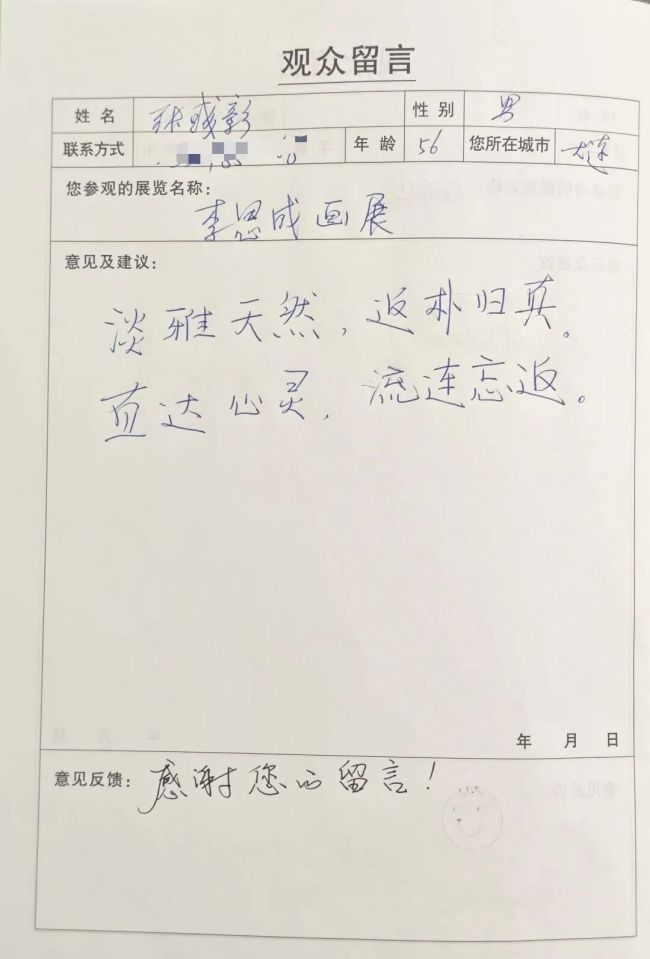 观众留言
姓名 张 彰 性别 男
联系方式 年龄 56 您所在城市 大连
您参观的展览名称：
李思成画展
意见及建议：
淡雅天然，返朴归真。
直达心灵，流连忘返。
年 月 日
意见反馈：感谢您的留言！